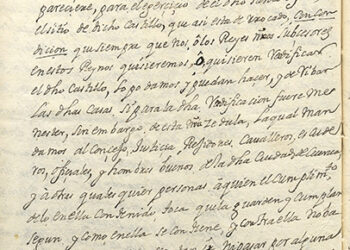 pareciere, para el egercicio de el dho
el sitio de dicho Castillo, que asi esta rebocado, Con Con
dicion que siempre que nos, ô los Reyes nros subcesores
en estos Reynos quisieremos, ô quisieren redificar
el dho Castillo, lo podamos y puedan hacer, y deribar
las dhas Casas, si para la dha redificacion fuere me
nester, sin embargo de esta nra Zedula, la qual man
damos al Concejo, Justicia, Regidores, Cavalleros, escude
ros, oficiales, y hombres buenos de la dha Ciudad de Cuenca,
y a otras quales quier personas, a quien el Cumplimto
de lo en ella Contenido toca que la guarden y Cumplan
segun, y como en ella se Contiene, y contra ella no ba
por alguna